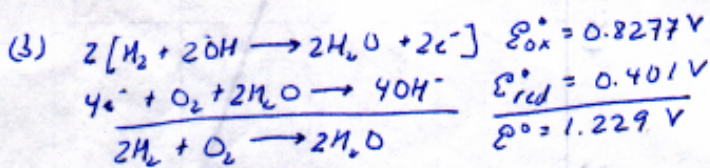 (3) 2[H₂ + 2OH⁻ → 2H₂O + 2e⁻] ℰ°ox = 0.8277 V
4e⁻ + O₂ + 2H₂O → 4OH⁻ ℰ°red = 0.401 V
2H₂ + O₂ → 2H₂O ℰ° = 1.229 V